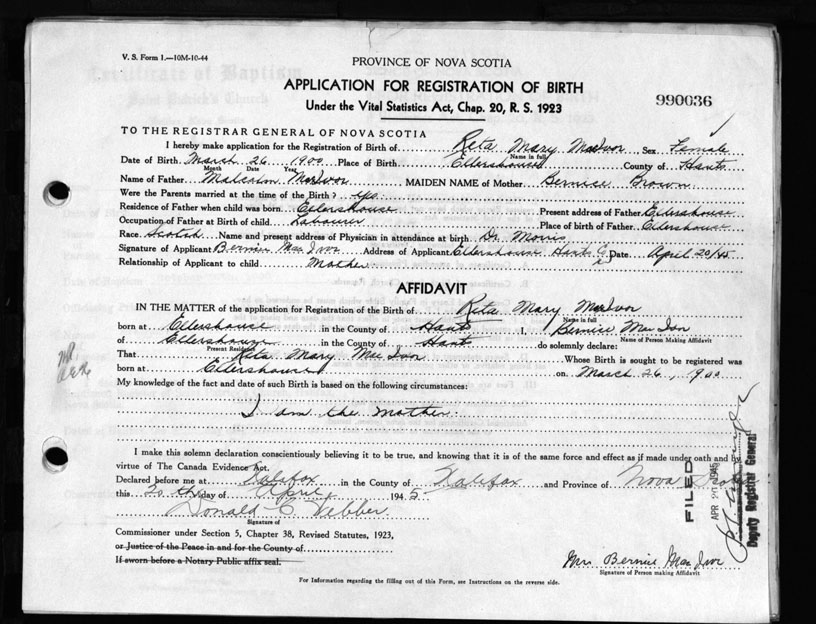 V. S. Form 1.—10M-10-44
PROVINCE OF NOVA SCOTIA
APPLICATION FOR REGISTRATION OF BIRTH
Under the Vital Statistics Act, Chap. 20, R. S. 1923
990036
TO THE REGISTRAR GENERAL OF NOVA SCOTIA
I hereby make application for the Registration of Birth of Reta Mary MacIvor Sex Female
Name in full
Date of Birth March 26 1900 Place of Birth Ellershouse County of Hants
Month Date Year
Name of Father Malcolm MacIvor MAIDEN NAME of Mother Bernice Brown
Were the Parents married at the time of the Birth? yes
Residence of Father when child was born Ellershouse Present address of Father Ellershouse
Occupation of Father at Birth of child Labourer Place of birth of Father Ellershouse
Race Scotch Name and present address of Physician in attendance at birth Dr. Morris
Signature of Applicant Bernice MacIvor Address of Applicant Ellershouse Hants Co Date April 20/45
Relationship of Applicant to child Mother
AFFIDAVIT
IN THE MATTER of the application for Registration of the Birth of Reta Mary MacIvor
Name in full
born at Ellershouse in the County of Hants I, Bernice MacIvor
Name of Person Making Affidavit
of Ellershouse in the County of Hants do solemnly declare:
Present Residence
That Reta Mary MacIvor Whose Birth is sought to be registered was
born at Ellershouse on March 26, 1900
My knowledge of the fact and date of such Birth is based on the following circumstances:
I am the mother.
I make this solemn declaration conscientiously believing it to be true, and knowing that it is of the same force and effect as if made under oath and by
virtue of The Canada Evidence Act.
Declared before me at Halifax in the County of Halifax and Province of Nova Scotia
this 20th day of April 1945
Donald C Webber
Signature of
Commissioner under Section 5, Chapter 38, Revised Statutes, 1923,
or Justice of the Peace in and for the County of
If sworn before a Notary Public affix seal.
Mrs Bernice MacIvor
Signature of Person making Affidavit
For Information regarding the filling out of this Form, see Instructions on the reverse side.
FILED
APR 20 1945
Deputy Registrar General